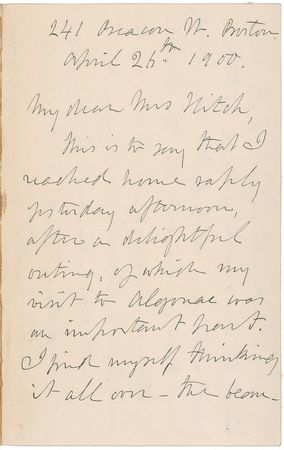 241 Beacon St. Boston.
April 26th 1900.
My dear Mrs Hitch,
This is to say that I
reached home safely
yesterday afternoon,
after a delightful
outing, of which my
visit to Algonac was
an important part.
I find myself thinking
it all over - the beau-